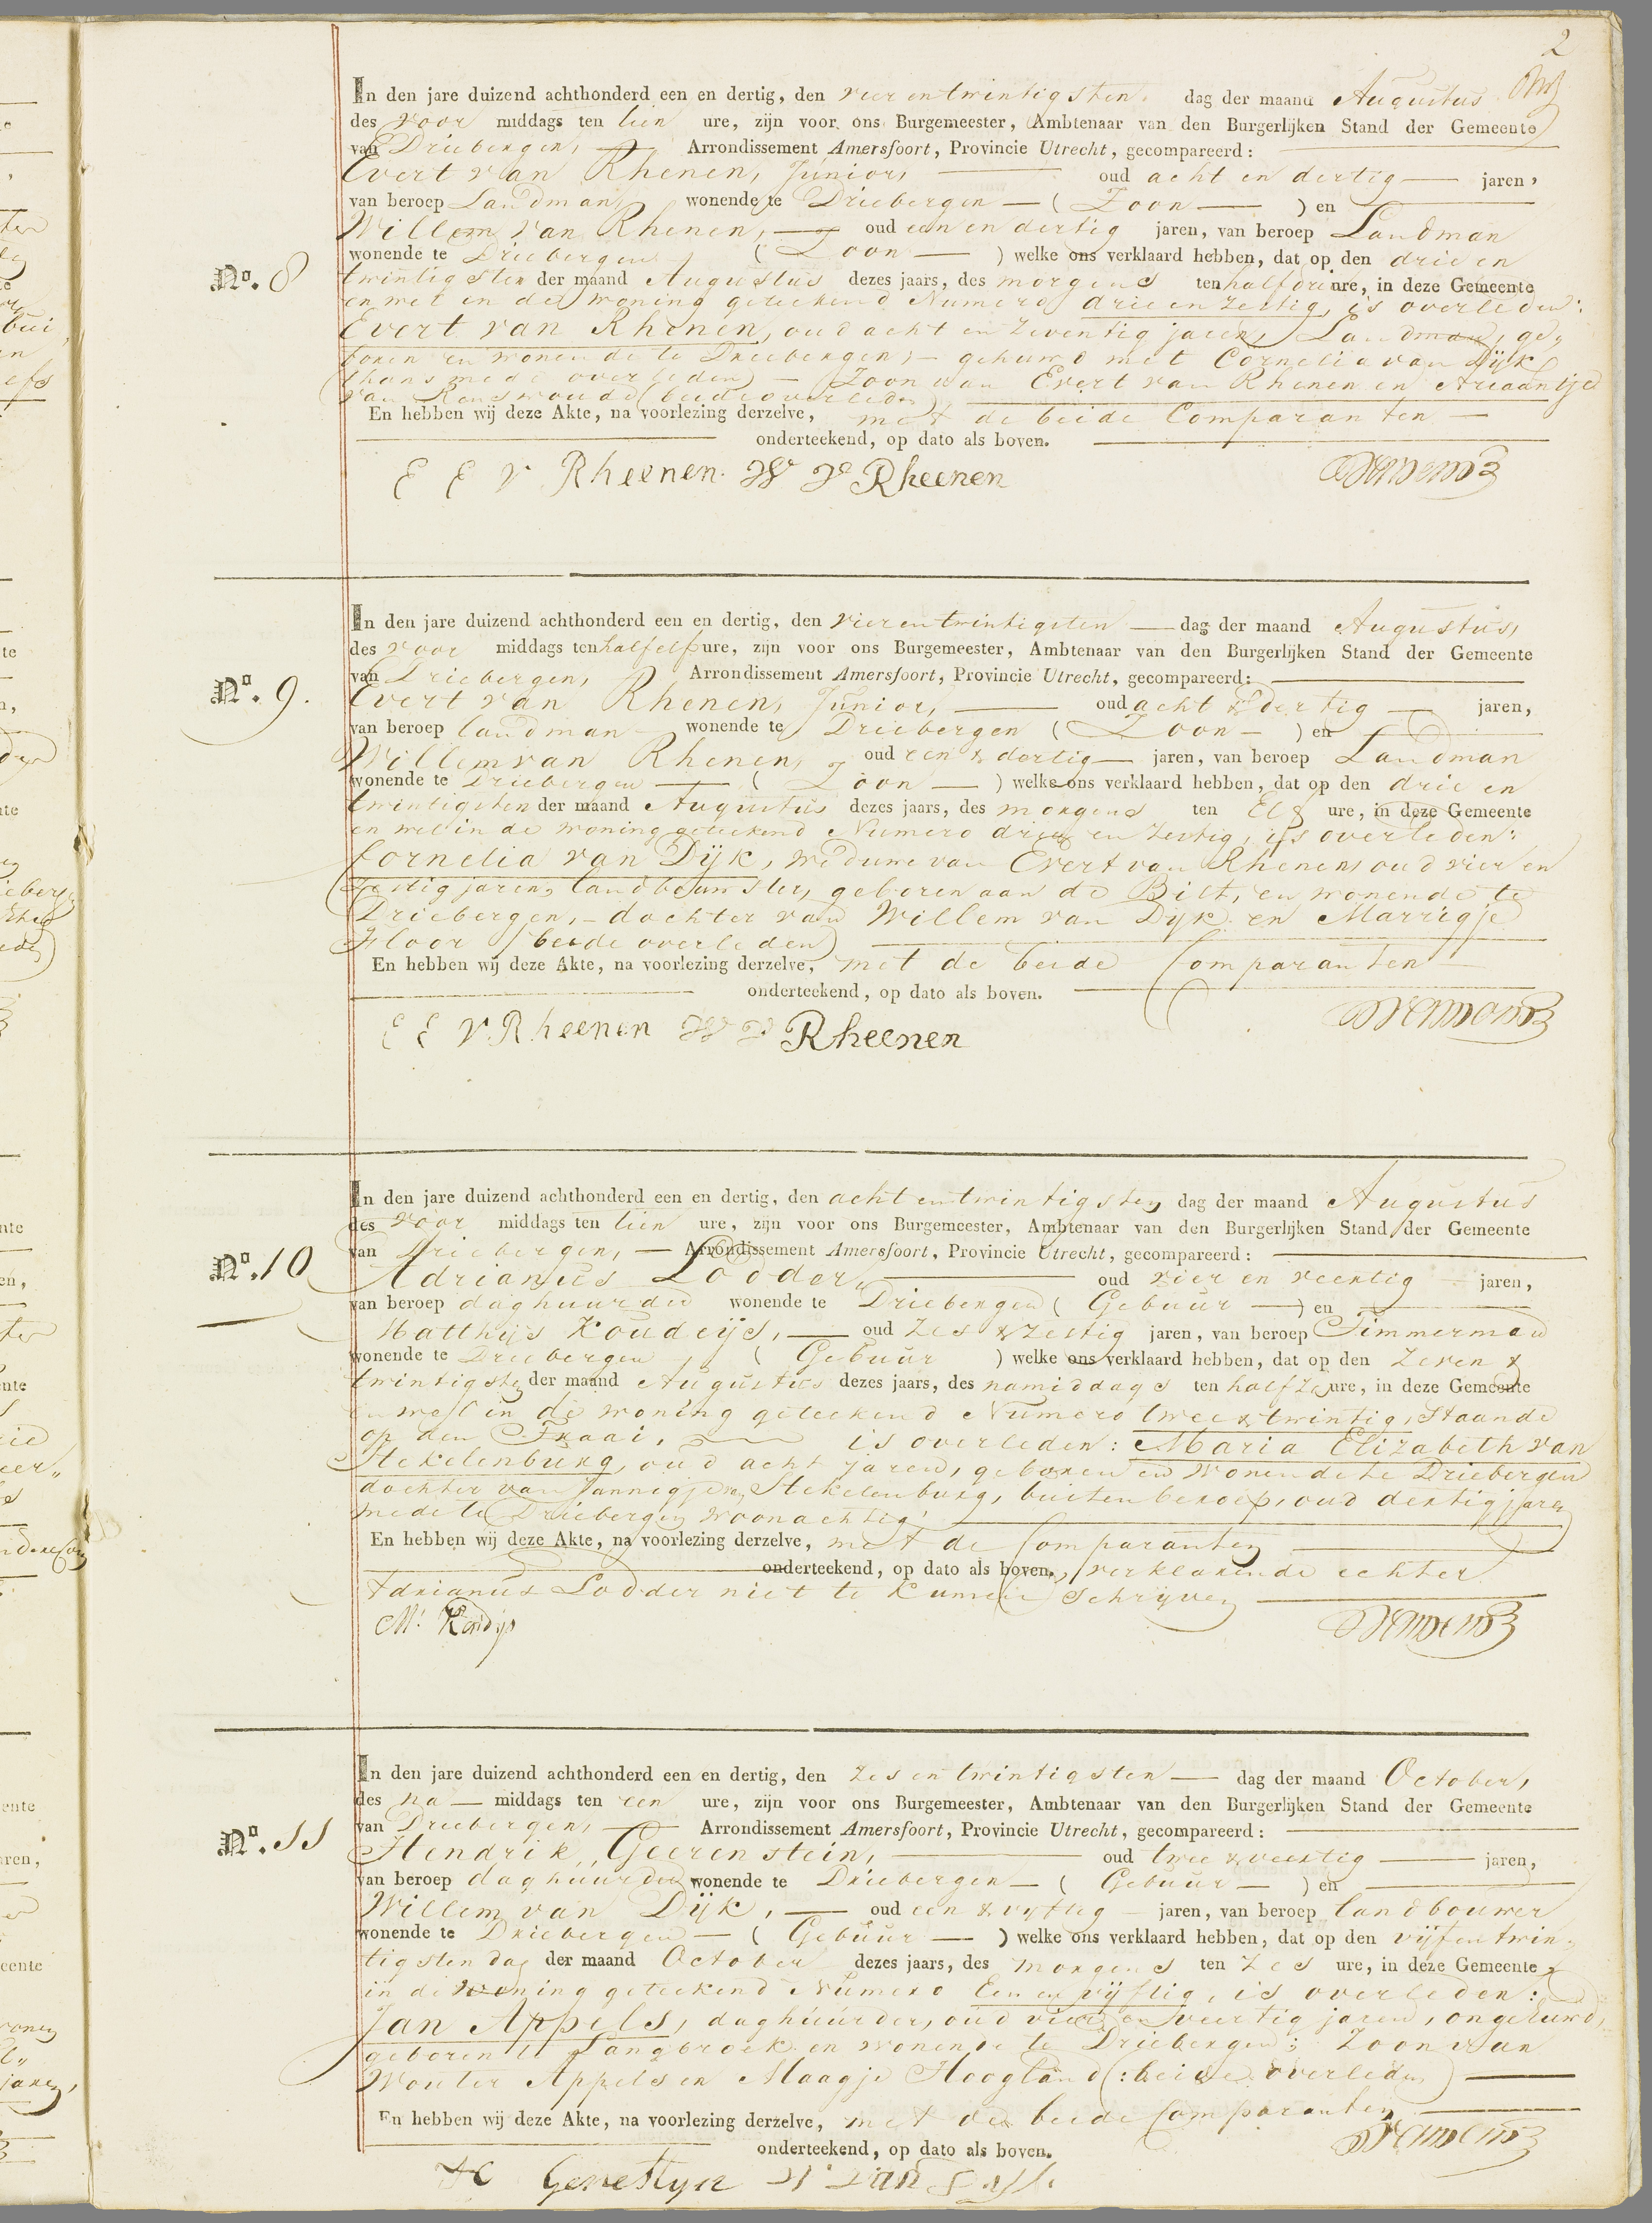 2
In den jare duizend achthonderd een en dertig, den vier en twintigsten dag der maand Augustus
des voor middags ten tien ure, zijn voor ons Burgemeester, Ambtenaar van den Burgerlijken Stand der Gemeente
van Driebergen, Arrondissement Amersfoort, Provincie Utrecht, gecompareerd:
Evert van Rhenen, Junior, oud acht en dertig jaren,
van beroep Landman, wonende te Driebergen (Zoon) en
No. 8
Willem van Rhenen, oud een en dertig jaren, van beroep Landman
wonende te Driebergen (Zoon) welke ons verklaard hebben, dat op den drie en
twintigsten der maand Augustus dezes jaars, des morgens ten half drie ure, in deze Gemeente
en wel in de woning geteekend Numero drie en zestig, is overleden:
Evert van Rhenen, oud acht en zeventig jaren, Landman, ge-
boren en wonende te Driebergen, - gehuwd met Cornelia van Dijk
(thans mede overleden) - Zoon van Evert van Rhenen en Ariaantje
van Renswoude (beide overleden)
En hebben wij deze Akte, na voorlezing derzelve, met de beide Comparanten
onderteekend, op dato als boven.
E E V Rheenen. W V Rheenen
In den jare duizend achthonderd een en dertig, den vier en twintigsten dag der maand Augustus,
des voor middags ten half elf ure, zijn voor ons Burgemeester, Ambtenaar van den Burgerlijken Stand der Gemeente
van Driebergen, Arrondissement Amersfoort, Provincie Utrecht, gecompareerd:
No. 9.
Evert van Rhenen, Junior, oud acht & dertig jaren,
van beroep landman wonende te Driebergen (Zoon) en
Willem van Rhenen, oud een & dertig jaren, van beroep Landman
wonende te Driebergen (Zoon) welke ons verklaard hebben, dat op den drie en
twintigsten der maand Augustus dezes jaars, des morgens ten Elf ure, in deze Gemeente
en wel in de woning geteekend Numero drie en zestig, is overleden:
Cornelia van Dijk, weduwe van Evert van Rhenen, oud vier en
zestig jaren, landbouwster, geboren aan de Bilt, en wonende te
Driebergen, - dochter van Willem van Dijk en Marrigje
Floor (beide overleden)
En hebben wij deze Akte, na voorlezing derzelve, met de beide Comparanten
onderteekend, op dato als boven.
E E V. Rheenen W V Rheenen
In den jare duizend achthonderd een en dertig, den acht en twintigsten dag der maand Augustus
des voor middags ten tien ure, zijn voor ons Burgemeester, Ambtenaar van den Burgerlijken Stand der Gemeente
van Driebergen, Arrondissement Amersfoort, Provincie Utrecht, gecompareerd:
No. 10
Adrianus Lodder, oud vier en veertig jaren,
van beroep daghuurder wonende te Driebergen (Gebuur) en
Matthijs Koudijs, oud zes & zestig jaren, van beroep Timmerman
wonende te Driebergen (Gebuur) welke ons verklaard hebben, dat op den zeven &
twintigsten der maand Augustus dezes jaars, des namiddags ten half ure, in deze Gemeente
en wel in de woning geteekend Numero twee & twintig, staande
op den Fraai, is overleden: Maria Elizabeth van
Stekelenburg, oud acht jaren, geboren en wonende te Driebergen
dochter van Jannigje van Stekelenburg, buiten beroep, oud dertig jaren
mede te Driebergen woonachtig.
En hebben wij deze Akte, na voorlezing derzelve, met de Comparanten
onderteekend, op dato als boven, verklarende echter
Adrianus Lodder niet te kunnen Schrijven
M. Koudijs
In den jare duizend achthonderd een en dertig, den zes en twintigsten dag der maand October,
des na middags ten een ure, zijn voor ons Burgemeester, Ambtenaar van den Burgerlijken Stand der Gemeente
van Driebergen, Arrondissement Amersfoort, Provincie Utrecht, gecompareerd:
No. 11
Hendrik Geerenstein, oud twee & veertig jaren,
van beroep daghuurder wonende te Driebergen (Gebuur) en
Willem van Dijk, oud een & vijftig jaren, van beroep landbouwer
wonende te Driebergen (Gebuur) welke ons verklaard hebben, dat op den vijf en twin-
tigsten dag der maand October dezes jaars, des morgens ten zes ure, in deze Gemeente &
in de woning geteekend Numero Een en vijftig, is overleden:
Jan Appels, daghuurder, oud vier en veertig jaren, ongehuwd,
geboren te Langbroek en wonende te Driebergen; Zoon van
Wouter Appels en Maagje Hoogland (: beide overleden)
En hebben wij deze Akte, na voorlezing derzelve, met de beide Comparanten
onderteekend, op dato als boven.